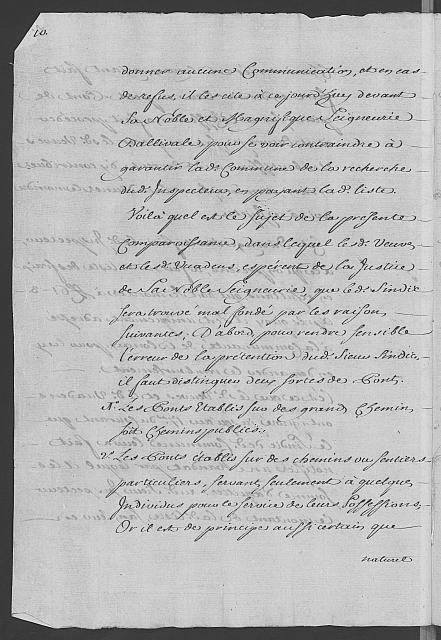 10.
donner aucune Communication, et en cas
de refus, il les cite à ce jourd'huy devant
Sa Noble et Magnifique Seigneurie
Ballivale, pour se voir contraindre à
garantir lad. Commune de la recherche
dud. Inspecteur, en payant lad. liste.
Voilà quel est le Sujet de la présente
Comparoissance, dans lequel le Sr. Veuve
et le Sr. Vuadens, espérent de la Justice
de Sa Noble Seigneurie que led. Sindic
sera trouvé mal fondé par les raisons
suivantes. D'abord pour rendre sensible
l'erreur de la prétention dud. Sieur Sindic,
il faut distinguer deux sortes de Ponts.
1°. Les Ponts Etablis sur des grands Chemins
soit Chemins publics.
2°. Les Ponts établis sur des chemins ou sentiers
particuliers, servant seulement à quelques
Individus pour le service de leurs Possessions,
Or il est de principe aussi certain que
naturel